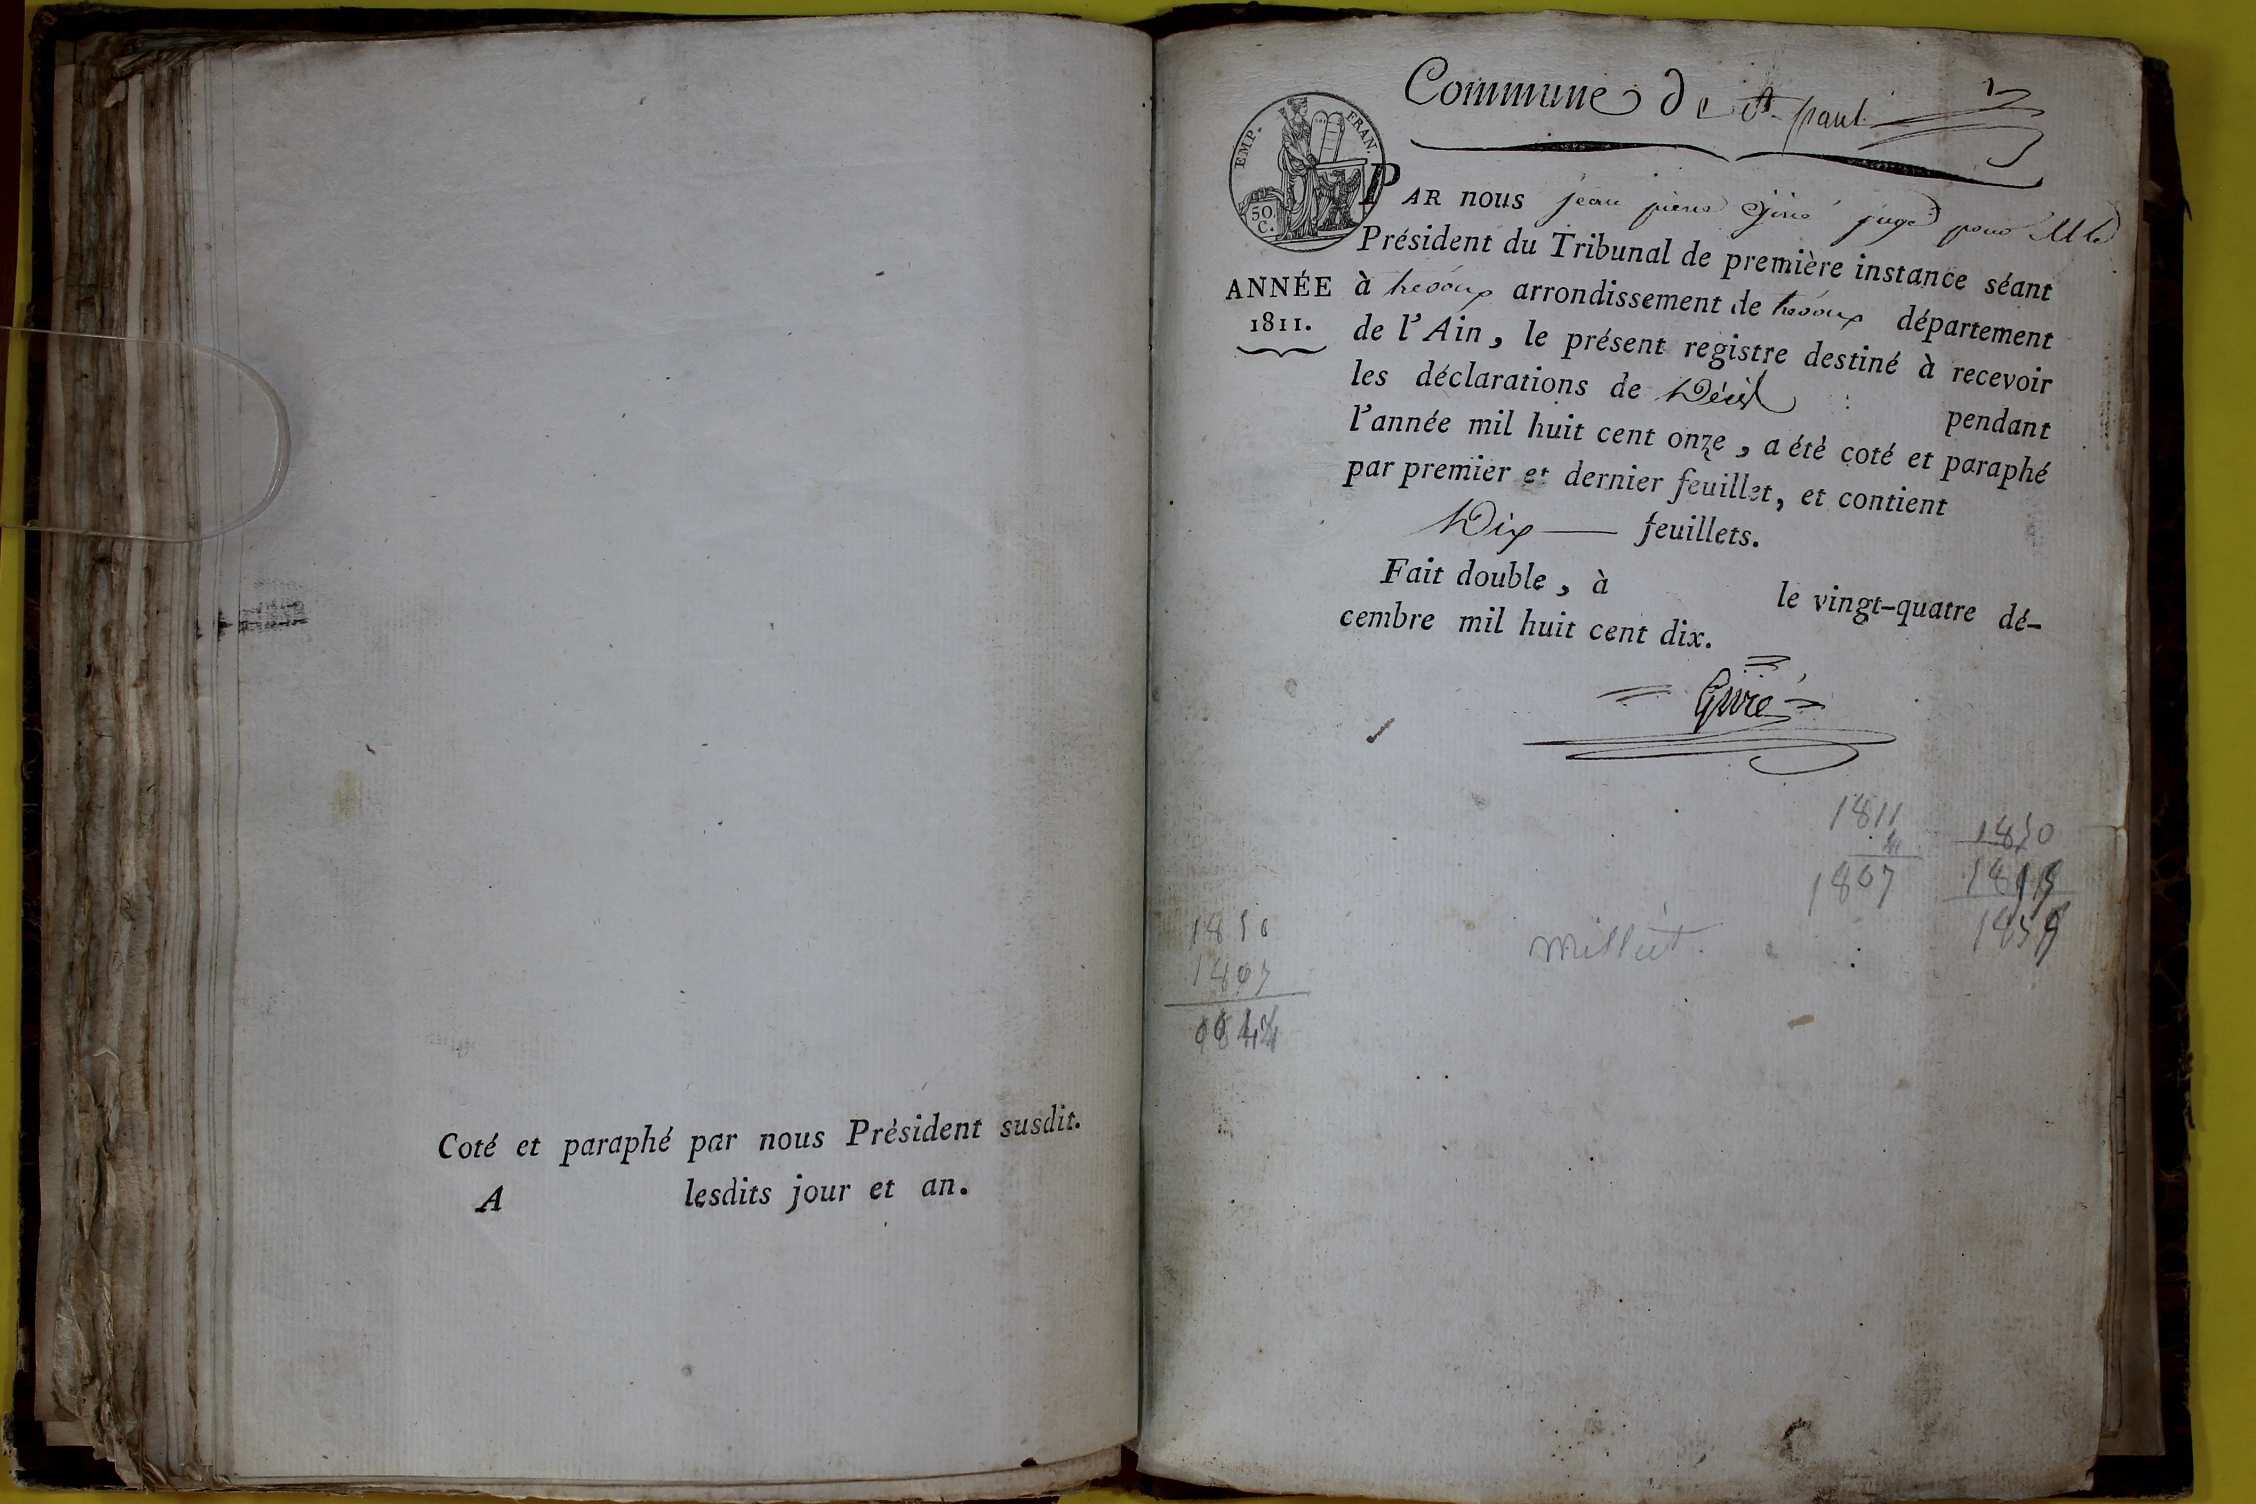 Coté et paraphé par nous Président susdit.
A lesdits jour et an.
Commune de St paul
EMP. FRAN.
50 C.
ANNÉE
1811.
PAR nous jean pierre Givré juge pour M le
Président du Tribunal de première instance séant
à trevoux arrondissement de trevoux département
de l'Ain, le présent registre destiné à recevoir
les déclarations de Décès pendant
l'année mil huit cent onze, a été coté et paraphé
par premier et dernier feuillet, et contient
Dix feuillets.
Fait double, à le vingt-quatre dé-
cembre mil huit cent dix.
Givré
1811
1807
1850
1850
1807